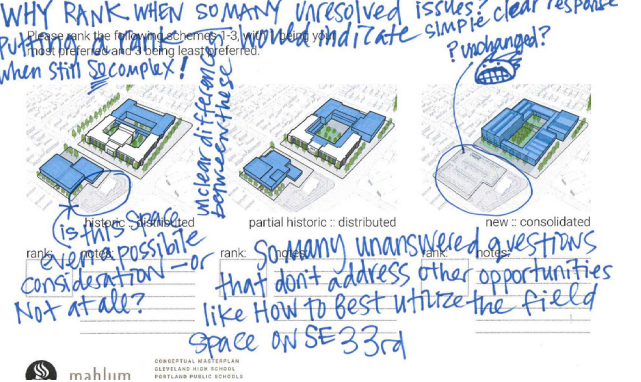 WHY RANK WHEN SO MANY UNRESOLVED issues?
Putting a rank would indicate simple clear response
when still so complex!
Please rank the following schemes 1-3, with 1 being your
most preferred and 3 being least preferred.
? unchanged?
unclear difference
between these
historic :: distributed
partial historic :: distributed
new :: consolidated
rank: notes:
rank: notes:
rank: notes:
is this space
even a possibile
consideration — or
Not at all?
So many unanswered questions
that don't address other opportunities
like How to Best utilize the field
space on SE 33rd
mahlum
CONCEPTUAL MASTERPLAN
CLEVELAND HIGH SCHOOL
PORTLAND PUBLIC SCHOOLS